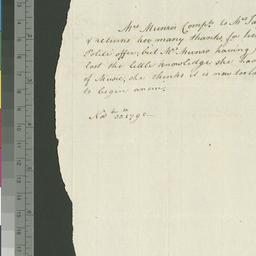 Mrs Munro's Compts to Mrs
& returns her many thanks for her
Polite offer; but Mrs Munro having
lost the little knowledge she had
of Music, she thinks it is now too late
to begin anew.